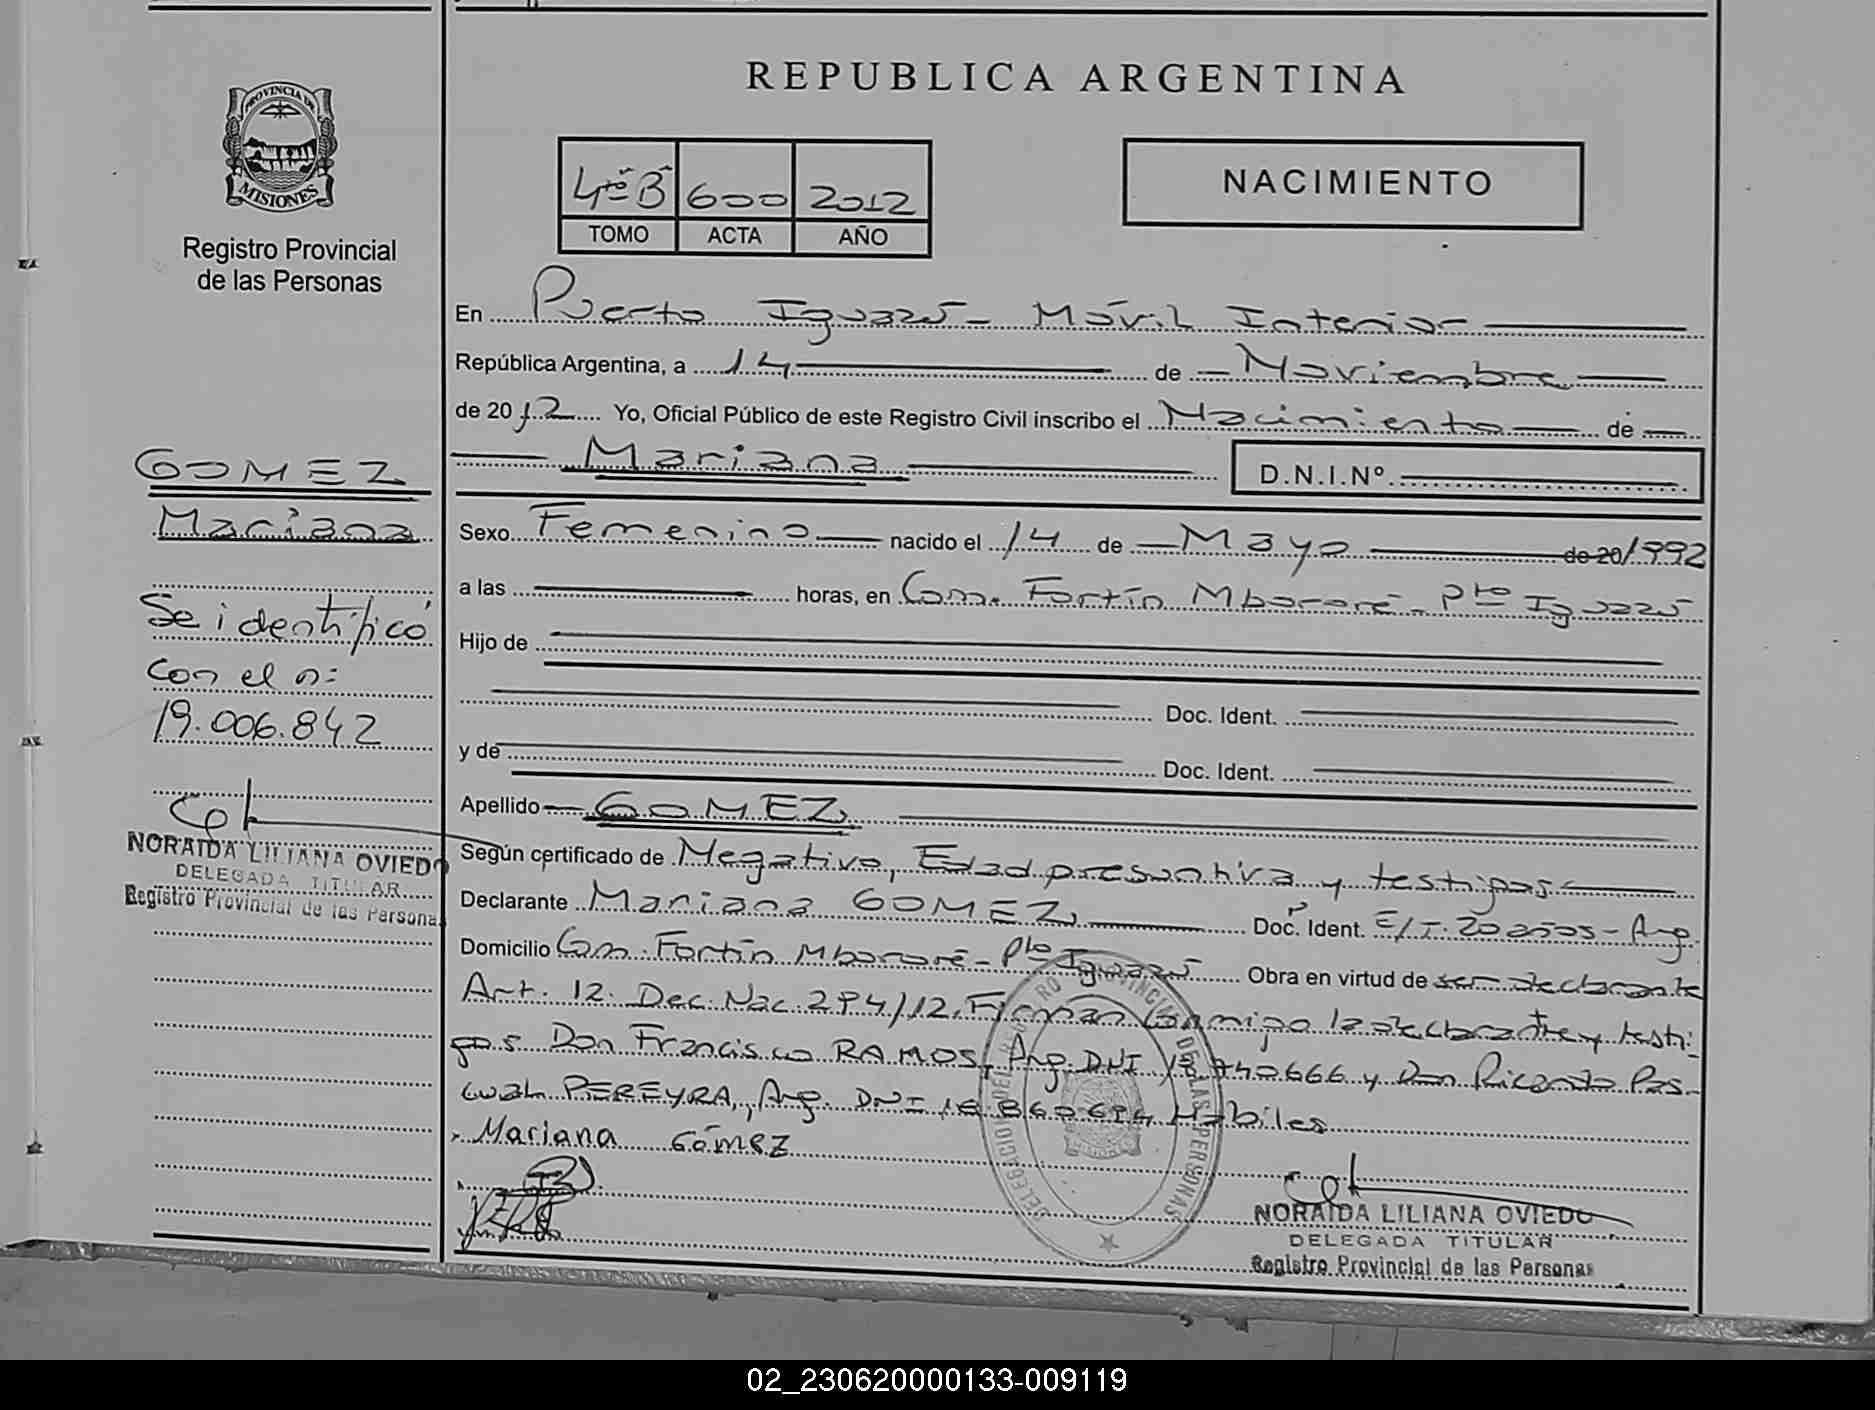 REPUBLICA ARGENTINA
PROVINCIA DE
MISIONES
Registro Provincial
de las Personas
4to "B" 600 2012
TOMO ACTA AÑO
NACIMIENTO
En Puerto Iguazú - Móvil Interior
República Argentina, a 14 de Noviembre
de 2012 Yo, Oficial Público de este Registro Civil inscribo el Nacimiento de
Mariana D.N.I.Nº.
Sexo Femenino nacido el 14 de Mayo de 20/1992
a las horas, en Com. Fortín Mbororé - Pto Iguazú
Hijo de
Doc. Ident.
y de Doc. Ident.
Apellido GOMEZ
Según certificado de Negativo, Edad presuntiva y testigos
Declarante Mariana GOMEZ Doc. Ident. E/T. 20 años - Arg.
Domicilio Com. Fortín Mbororé - Pto Iguazú Obra en virtud de ser declarante
Art. 12. Dec. Nac. 294/12. Firman conmigo la declarante y testi-
gos Don Francisco RAMOS, Arg. DNI 740666 y Don Ricardo Pas-
cual PEREYRA, Arg. DNI Hábiles
Mariana Gómez
GOMEZ
Mariana
Se identificó
con el n:
19.006.842
NORAIDA LILIANA OVIEDO
DELEGADA TITULAR
Registro Provincial de las Personas
NORAIDA LILIANA OVIEDO
DELEGADA TITULAR
Registro Provincial de las Personas
02_230620000133-009119